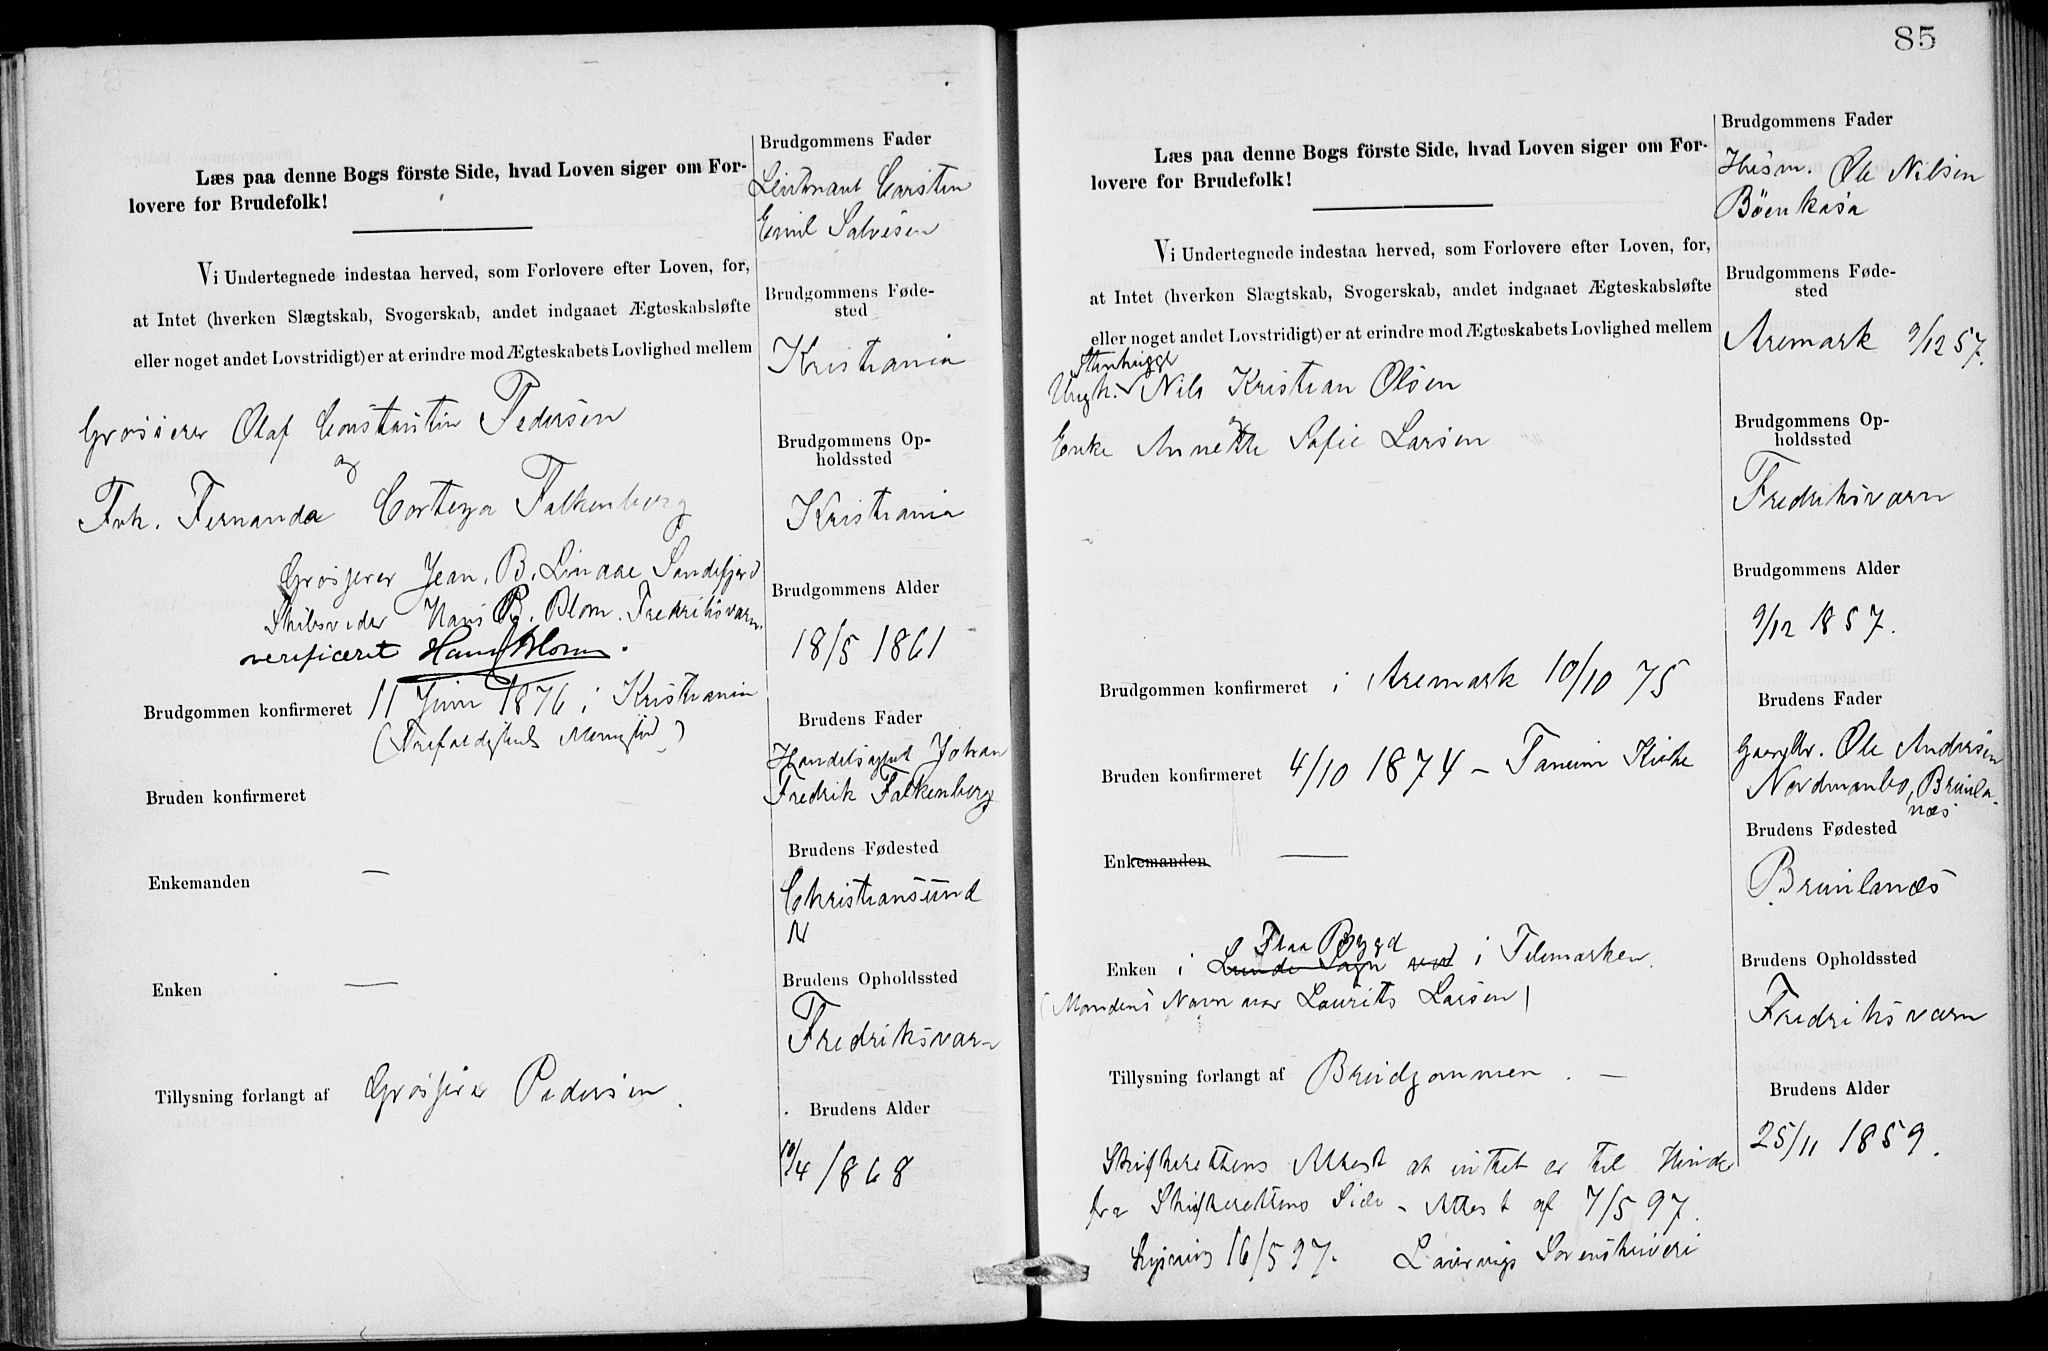 Læs paa denne Bogs förste Side, hvad Loven siger om For-
lovere for Brudefolk!
Vi Undertegnede indestaa herved, som Forlovere efter Loven, for,
at Intet (hverken Slægtskab, Svogerskab, andet indgaaet Ægteskabsløfte
eller noget andet Lovstridigt) er at erindre mod Ægteskabets Lovlighed mellem
Grosserer Olaf Constantin Pedersen
og
Frk. Fernanda Corteza Falkenberg
Grosserer Jean. B. Linaae Sandefjord
Skibsreder Hans B. Blom. Fredriksværn.
verificeret Hans Blom.
Brudgommen konfirmeret 11 Juni 1876 i Kristiania
(Trefoldigheds Menighed)
Bruden konfirmeret
Enkemanden —
Enken —
Tillysning forlangt af Grosserer Pedersen.
Brudgommens Fader
Løitnant Carsten
Emil Salvesen
Brudgommens Føde-
sted
Kristiania
Brudgommens Op-
holdssted
Kristiania
Brudgommens Alder
18/5 1861
Brudens Fader
Handelsagent Johan
Fredrik Falkenberg
Brudens Fødested
Christianssund
N
Brudens Opholdssted
Fredriksværn
Brudens Alder
/4 1868
85
Læs paa denne Bogs förste Side, hvad Loven siger om For-
lovere for Brudefolk!
Vi Undertegnede indestaa herved, som Forlovere efter Loven, for,
at Intet (hverken Slægtskab, Svogerskab, andet indgaaet Ægteskabsløfte
eller noget andet Lovstridigt) er at erindre mod Ægteskabets Lovlighed mellem
Stenhugger
Ungk. Nils Kristian Olsen
og
Enke Annette Sofie Larsen
Brudgommen konfirmeret i Aremark 10/10 75
Bruden konfirmeret 4/10 1874 – Tanum Kirke
Enkemanden —
Flaa Bygd
Enken i Lunde Sogn ved i Telemarken.
(Mandens Navn var Laurits Larsen)
Tillysning forlangt af Brudgommen. —
Skifterettens Attest at intet er til Hinder
fra Skifterettens Side – Attest af 7/5 97.
Lysning 16/5 97. Laurvigs Sorenskriveri
Brudgommens Fader
Husm. Ole Nilsen
Böenkasa
Brudgommens Føde-
sted
Aremark 9/12 57.
Brudgommens Op-
holdssted
Fredriksværn
Brudgommens Alder
9/12 1857.
Brudens Fader
Gaardbr. Ole Andersen
Nordmanbo, Brunla-
næs
Brudens Fødested
Brunlanæs
Brudens Opholdssted
Fredriksværn
Brudens Alder
25/11 1859.